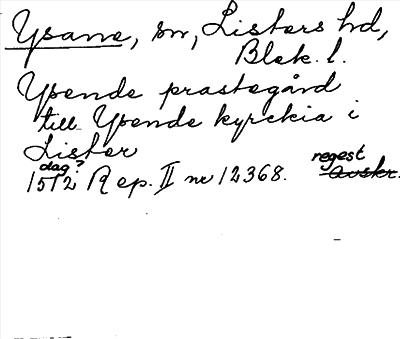 Ysane, sn, Listers hd,
Blek. l.
Ysende prastegård
till Ysende kyrckia i
Lister
dag?
1512 Rep. II nr 12368. regest
avskr.